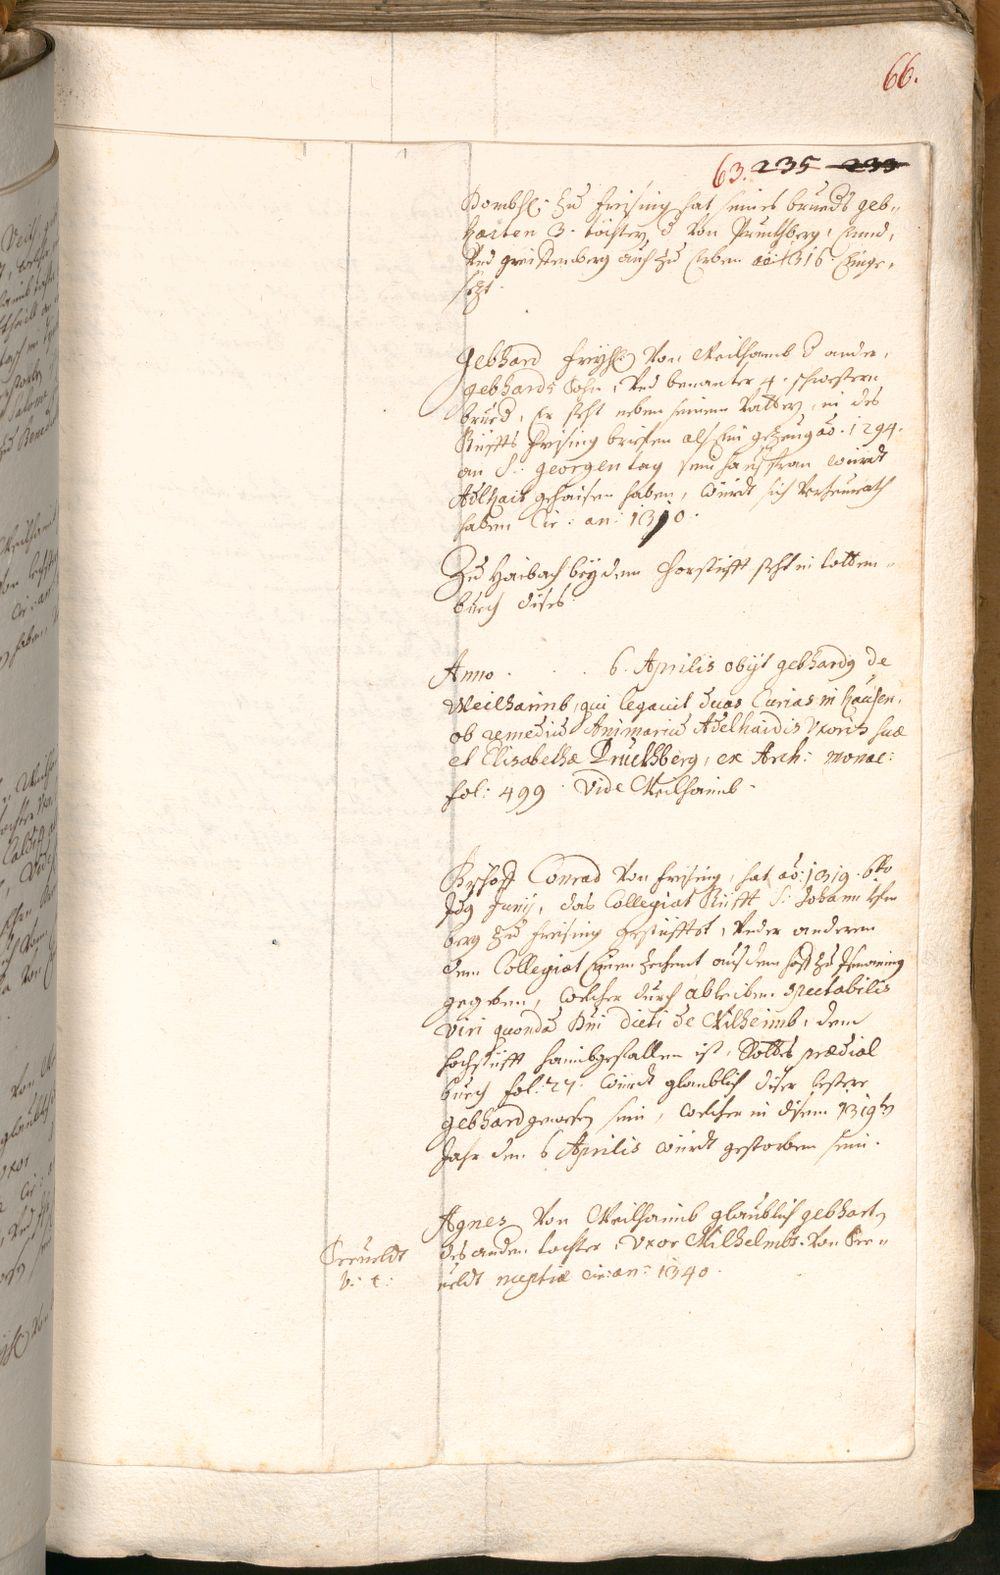 66.
63. 235 233
Dombh: zu Freising hat seines brueds geb-
harten 3. töchter d von Pruckhberg, Cund,
Und greiffenberg auch zu Erben ao: 1316. Einge-
sezt.
Gebhard Freyh: Von Weilhaimb d ander,
gebhards Sohn, Und benanter 4. schwestern
brued, Er steht neben seinem Vatter, in des
Stüffts Freising briefen als Ein gezeug ao. 1294.
an S: georgen tag sein hausfrau würdt
Adlhait gehaisen haben, würdt sich Verheurath
haben Cir: an: 1310.
Zu Haibach bey dem Chorstüfft steht in todten-
buech dises:
Anno . . . 6. Aprilis obijt gebhardg de
Weilhaimb, qui legauit duas Curias in hausen,
ob remediu Animaru Adelhaidis Vxoris suæ
et Elisabethæ Pruckhberg, ex Arch: monac:
fol: 499. Vide Weilhaimb.
Bischoff Conrad Von Freising, hat ao: 1319. 6to
Idg Junij, das Collegiat Stüfft S: Johann
berg zu Freising gestüfftet, Under anderem
dem Collegiat Einen zehent aus dem hoff zu Ismaning
gegeben, welcher durch ableiben spectabilis
viri quonda Dni dicti de Wilheimb, dem
hochstüfft haimbgefallen ist, Vide prædial
buech fol: 27. würdt glaublich diser lestere
gebhard gewesen sein, welcher in disem 1319ten
Jahr den 6 Aprilis würdt gestorben sein.
Agnes Von Weilhaimb glaublich gebharten
des andern tochter, Vxor Wilhelmbs Von See-
ueldt nuptiæ cir: an: 1340.
Seeueldt
V: t: